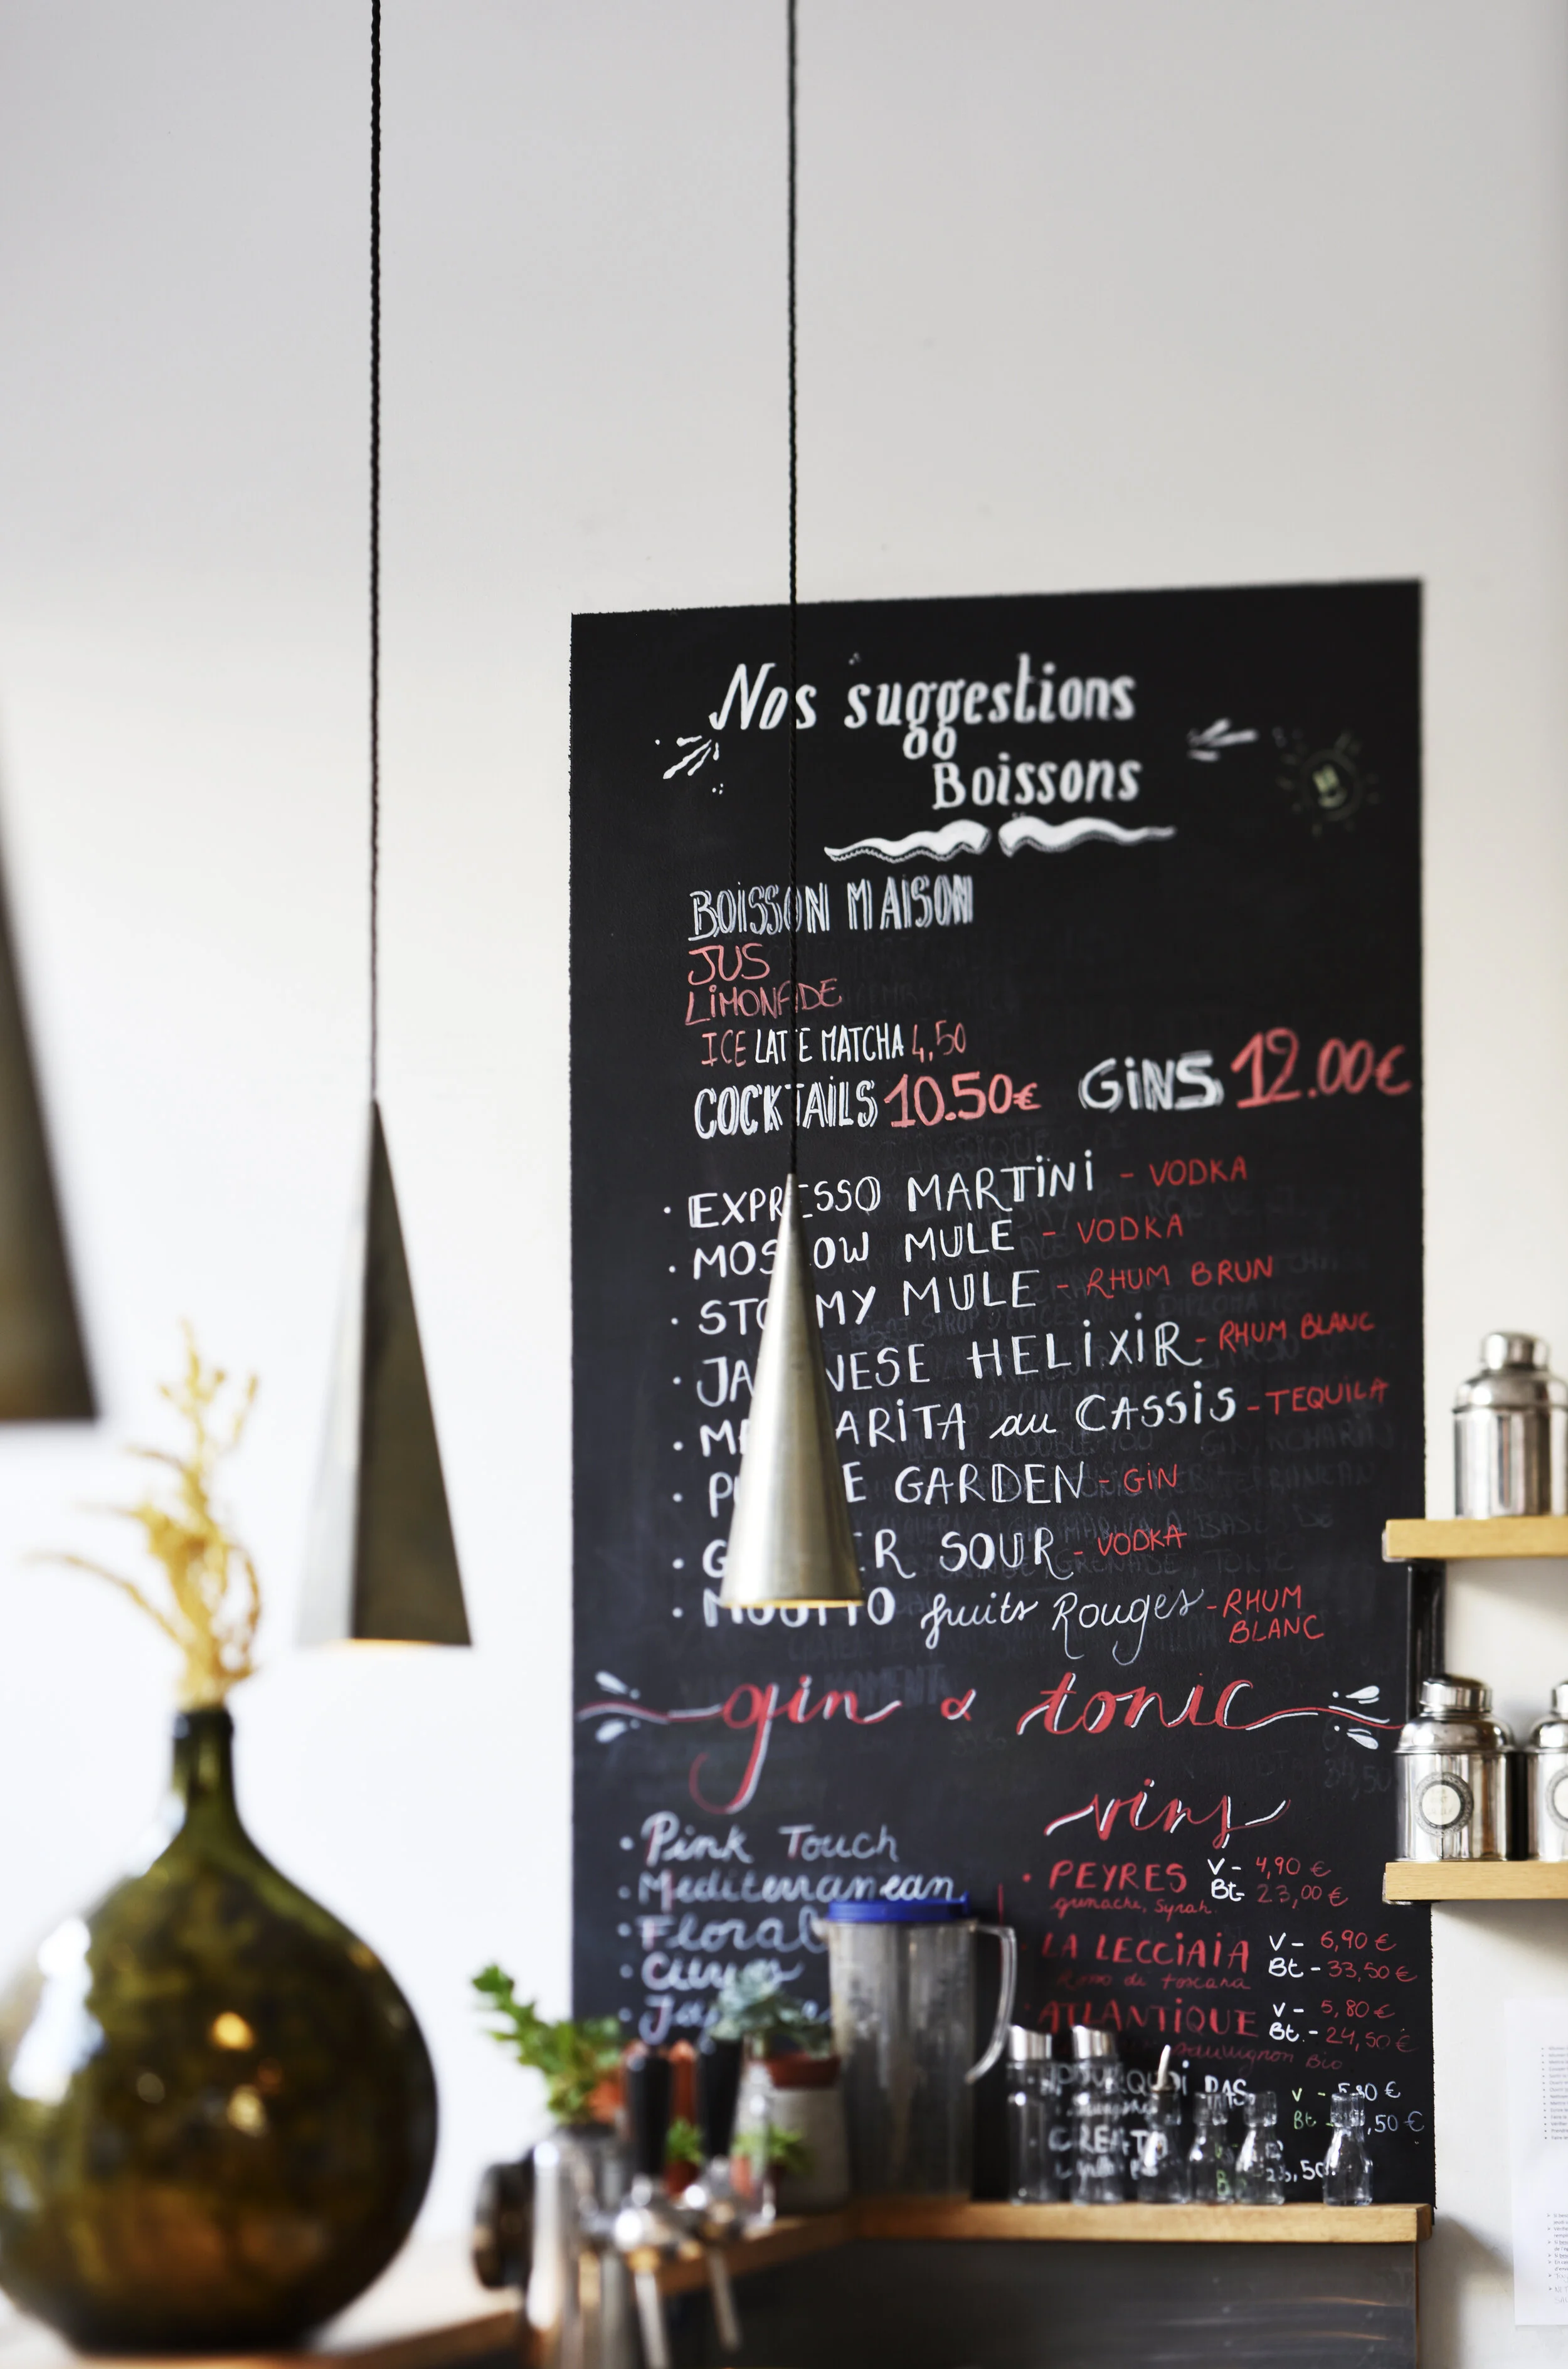 Nos suggestions
Boissons
BOISSON MAISON
JUS
LIMONADE
ICE LATTE MATCHA 4,50
COCKTAILS 10.50€ GINS 12.00€
· EXPRESSO MARTINI - VODKA
· MOSCOW MULE - VODKA
· STORMY MULE - RHUM BRUN
· HELIXIR - RHUM BLANC
· MARGARITA au CASSIS - TEQUILA
· GARDEN - GIN
· SOUR - VODKA
· fruits Rouges - RHUM
BLANC
gin & tonic
· Pink Touch
· Mediterranean
· Floral
· Citrus
vins
· PEYRES V - 4,90 €
Bt- 23,00 €
grenache, Syrah.
LA LECCIAIA V - 6,90 €
Bt - 33,50 €
di toscana
ATLANTIQUE V - 5,80 €
Bt. - 24,50 €
sauvignon Bio
POURQUOI PAS V -
Bt ,50 €